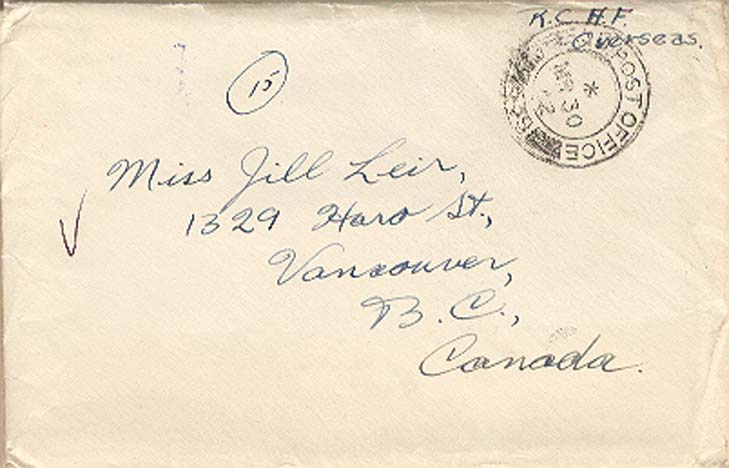 R.C.A.F.
Overseas.
POST OFFICE
*
30
15
Miss Jill Leir,
1329 Haro St.,
Vancouver,
B.C.,
Canada.